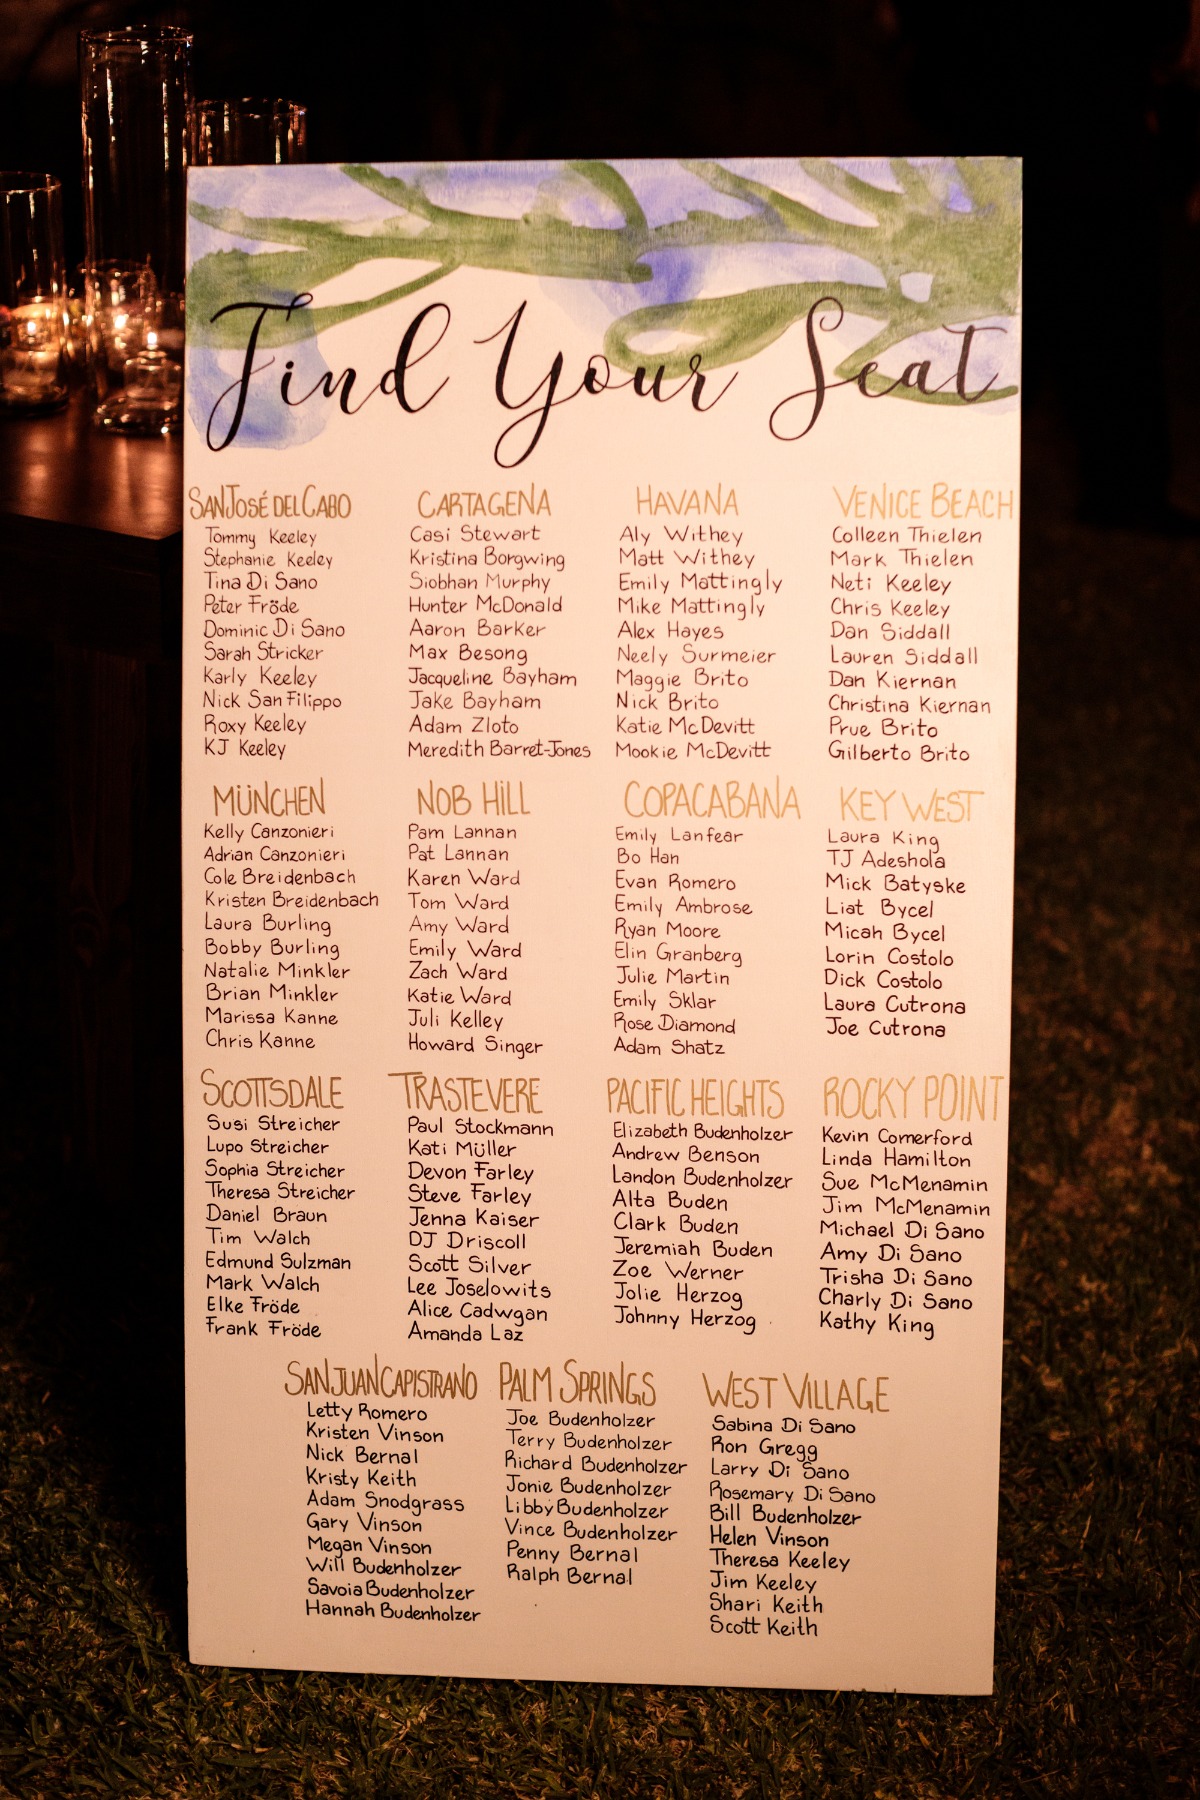 Find Your Seat
SAN JOSÉ DEL CABO
Tommy Keeley
Stephanie Keeley
Tina Di Sano
Peter Fröde
Dominic Di Sano
Sarah Stricker
Karly Keeley
Nick San Filippo
Roxy Keeley
KJ Keeley
CARTAGENA
Casi Stewart
Kristina Borgwing
Siobhan Murphy
Hunter McDonald
Aaron Barker
Max Besong
Jacqueline Bayham
Jake Bayham
Adam Zloto
Meredith Barret-Jones
HAVANA
Aly Withey
Matt Withey
Emily Mattingly
Mike Mattingly
Alex Hayes
Neely Surmeier
Maggie Brito
Nick Brito
Katie McDevitt
Mookie McDevitt
VENICE BEACH
Colleen Thielen
Mark Thielen
Neti Keeley
Chris Keeley
Dan Siddall
Lauren Siddall
Dan Kiernan
Christina Kiernan
Prue Brito
Gilberto Brito
MÜNCHEN
Kelly Canzonieri
Adrian Canzonieri
Cole Breidenbach
Kristen Breidenbach
Laura Burling
Bobby Burling
Natalie Minkler
Brian Minkler
Marissa Kanne
Chris Kanne
NOB HILL
Pam Lannan
Pat Lannan
Karen Ward
Tom Ward
Amy Ward
Emily Ward
Zach Ward
Katie Ward
Juli Kelley
Howard Singer
COPACABANA
Emily Lanfear
Bo Han
Evan Romero
Emily Ambrose
Ryan Moore
Elin Granberg
Julie Martin
Emily Sklar
Rose Diamond
Adam Shatz
KEY WEST
Laura King
TJ Adeshola
Mick Batyske
Liat Bycel
Micah Bycel
Lorin Costolo
Dick Costolo
Laura Cutrona
Joe Cutrona
SCOTTSDALE
Susi Streicher
Lupo Streicher
Sophia Streicher
Theresa Streicher
Daniel Braun
Tim Walch
Edmund Sulzman
Mark Walch
Elke Fröde
Frank Fröde
TRASTEVERE
Paul Stockmann
Kati Müller
Devon Farley
Steve Farley
Jenna Kaiser
DJ Driscoll
Scott Silver
Lee Joselowits
Alice Cadwgan
Amanda Laz
PACIFIC HEIGHTS
Elizabeth Budenholzer
Andrew Benson
Landon Budenholzer
Alta Buden
Clark Buden
Jeremiah Buden
Zoe Werner
Jolie Herzog
Johnny Herzog
ROCKY POINT
Kevin Comerford
Linda Hamilton
Sue McMenamin
Jim McMenamin
Michael Di Sano
Amy Di Sano
Trisha Di Sano
Charly Di Sano
Kathy King
SAN JUAN CAPISTRANO
Letty Romero
Kristen Vinson
Nick Bernal
Kristy Keith
Adam Snodgrass
Gary Vinson
Megan Vinson
Will Budenholzer
Savoia Budenholzer
Hannah Budenholzer
PALM SPRINGS
Joe Budenholzer
Terry Budenholzer
Richard Budenholzer
Jonie Budenholzer
Libby Budenholzer
Vince Budenholzer
Penny Bernal
Ralph Bernal
WEST VILLAGE
Sabina Di Sano
Ron Gregg
Larry Di Sano
Rosemary Di Sano
Bill Budenholzer
Helen Vinson
Theresa Keeley
Jim Keeley
Shari Keith
Scott Keith